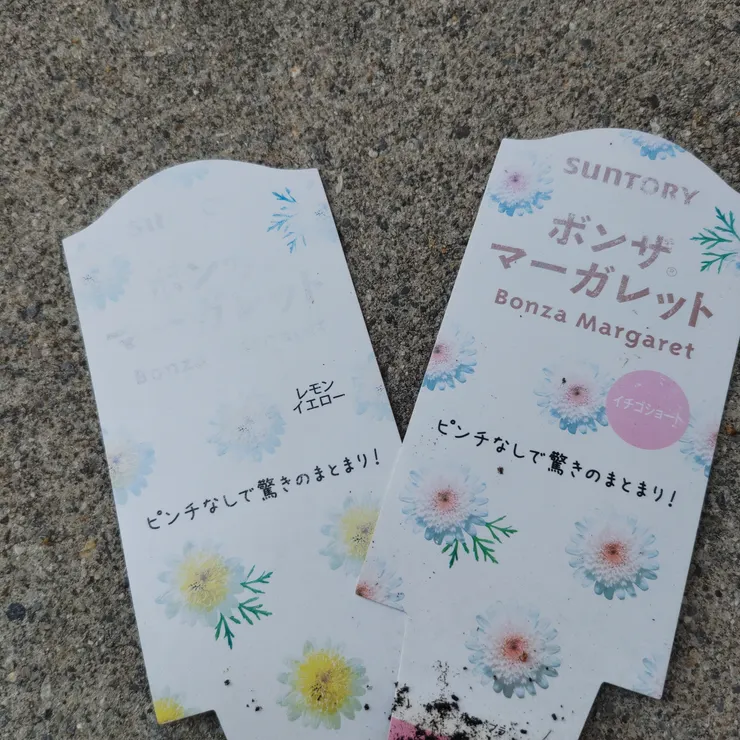 レモン
イエロー
ピンチなしで驚きのまとまり!
SUNTORY
ボンザ
マーガレット®
Bonza Margaret
イチゴショート
ピンチなしで驚きのまとまり!